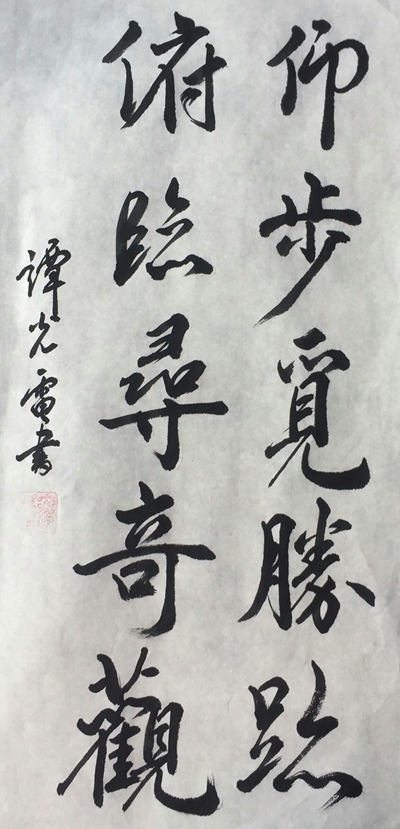 仰步覓勝跡
俯臨尋奇觀
譚光雷書